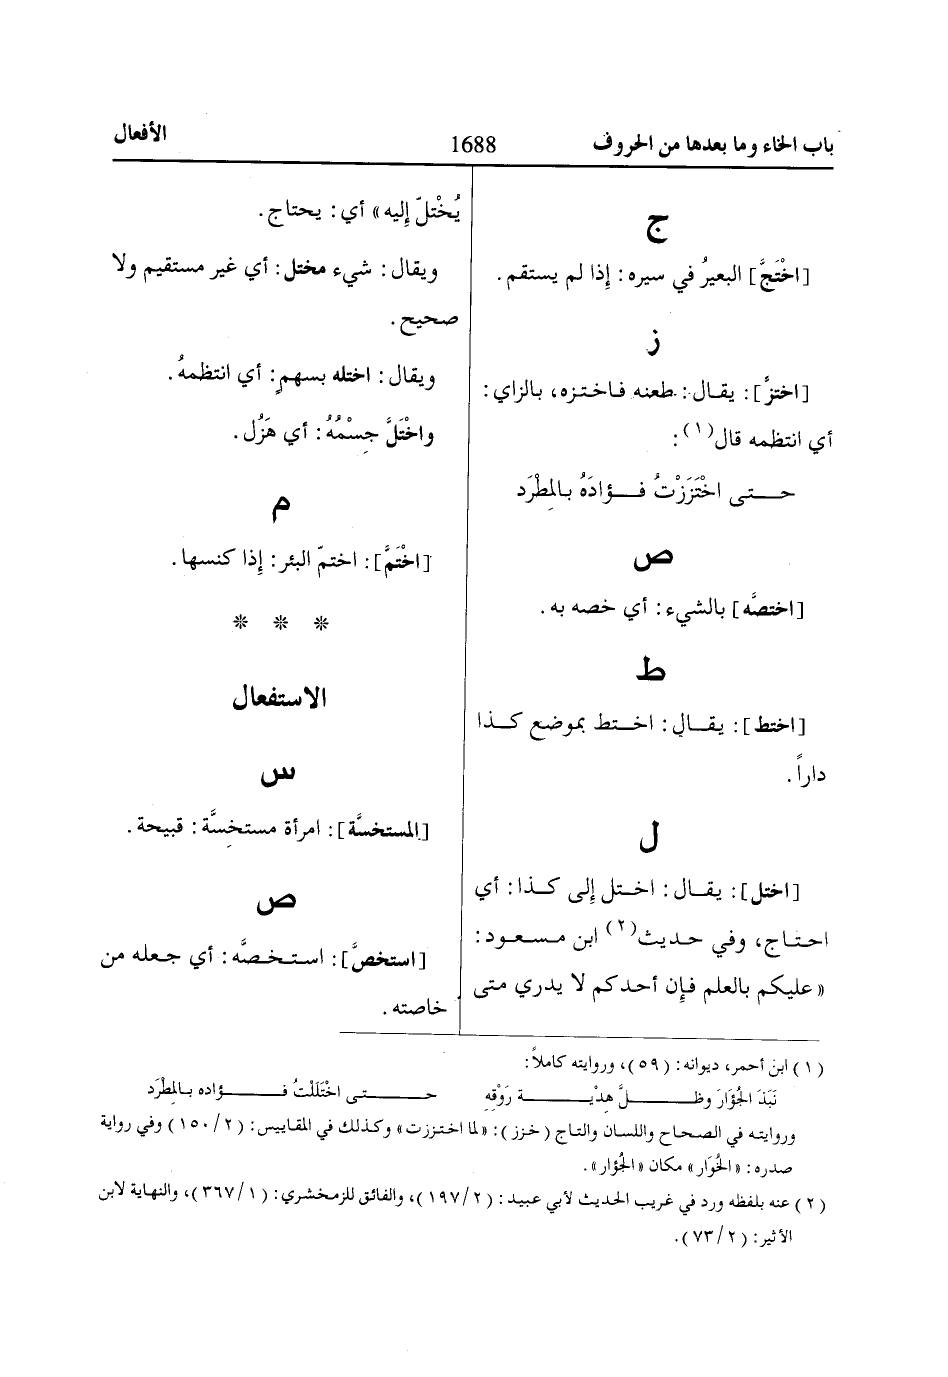 باب الخاء وما بعدها من الحروف 1688 الأفعال
ج
[اخْتَجَّ] البعيرُ في سيره: إِذا لم يستقم.
ز
[اختزَّ]: يقال: طعنه فاختزه، بالزاي:
أي انتظمه قال(١):
حتى اخْتَزَزْتُ فؤادَهُ بالمِطْرَد
ص
[اختصَّه] بالشيء: أي خصه به.
ط
[اختط]: يقال: اختط بموضع كذا
داراً.
ل
[اختل]: يقال: اختل إِلى كذا: أي
احتاج، وفي حديث(٢) ابن مسعود:
«عليكم بالعلم فإِن أحدكم لا يدري متى
يُخْتلّ إِليه» أي: يحتاج.
ويقال: شيء مختل: أي غير مستقيم ولا
صحيح.
ويقال: اختله بسهمٍ: أي انتظمهُ.
واخْتَلَّ جِسْمُهُ: أي هَزُل.
م
[اخْتَمَّ]: اختمّ البئر: إِذا كنسها.
* * *
الاستفعال
س
[المستخسَّة]: امرأة مستخِسَّة: قبيحة.
ص
[استخصَّ]: استخصَّه: أي جعله من
خاصته.
(١) ابن أحمر، ديوانه: (٥٩)، وروايته كاملاً:
نَبَذَ الجُؤَارَ وظلَّ هِدْيَةَ رَوْقِهِ حتى اخْتَلَلْتُ فؤاده بالمِطْرَد
وروايته في الصحاح واللسان والتاج (خزز): «لما اختززت» وكذلك في المقاييس: (٢/١٥٠) وفي رواية
صدره: «الخُوَار» مكان «الجُؤار».
(٢) عنه بلفظه ورد في غريب الحديث لأبي عبيد: (٢/١٩٧)، والفائق للزمخشري: (١/٣٦٧)، والنهاية لابن
الأثير: (٢/٧٣).